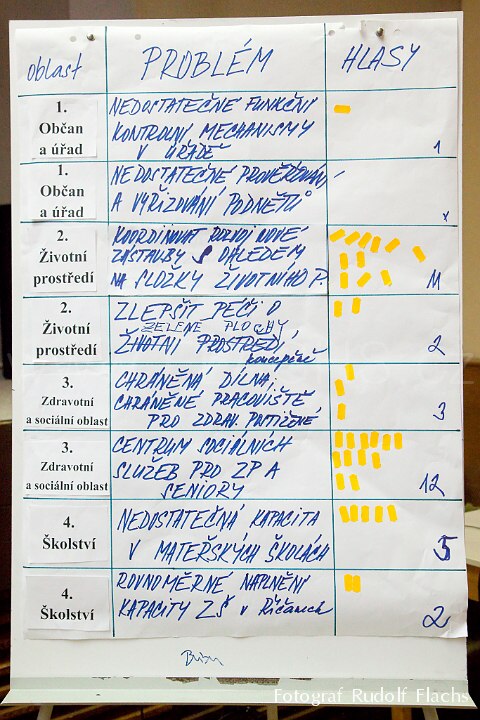 oblast PROBLÉM HLASY
1.
Občan
a úřad
NEDOSTATEČNĚ FUNKČNÍ
KONTROLNÍ MECHANISMY
V ÚŘADĚ
1
1.
Občan
a úřad
NEDOSTATEČNÉ PROVĚŘOVÁNÍ
A VYŘIZOVÁNÍ PODNĚTŮ
2.
Životní
prostředí
KOORDINOVAT ROZVOJ NOVÉ
ZÁSTAVBY S OHLEDEM
NA SLOŽKY ŽIVOTNÍHO P.
11
2.
Životní
prostředí
ZLEPŠIT PÉČI O
ZELENÉ PLOCHY,
ŽIVOTNÍ PROSTŘEDÍ,
koncepčně
2
3.
Zdravotní
a sociální oblast
CHRÁNĚNÁ DÍLNA,
CHRÁNĚNÉ PRACOVIŠTĚ
PRO ZDRAV. POSTIŽENÉ
3
3.
Zdravotní
a sociální oblast
CENTRUM SOCIÁLNÍCH
SLUŽEB PRO ZP A
SENIORY
12
4.
Školství
NEDOSTATEČNÁ KAPACITA
V MATEŘSKÝCH ŠKOLÁCH
5
4.
Školství
ROVNOMĚRNÉ NAPLNĚNÍ
KAPACITY ZŠ v Říčanech
2
Fotograf Rudolf Flachs